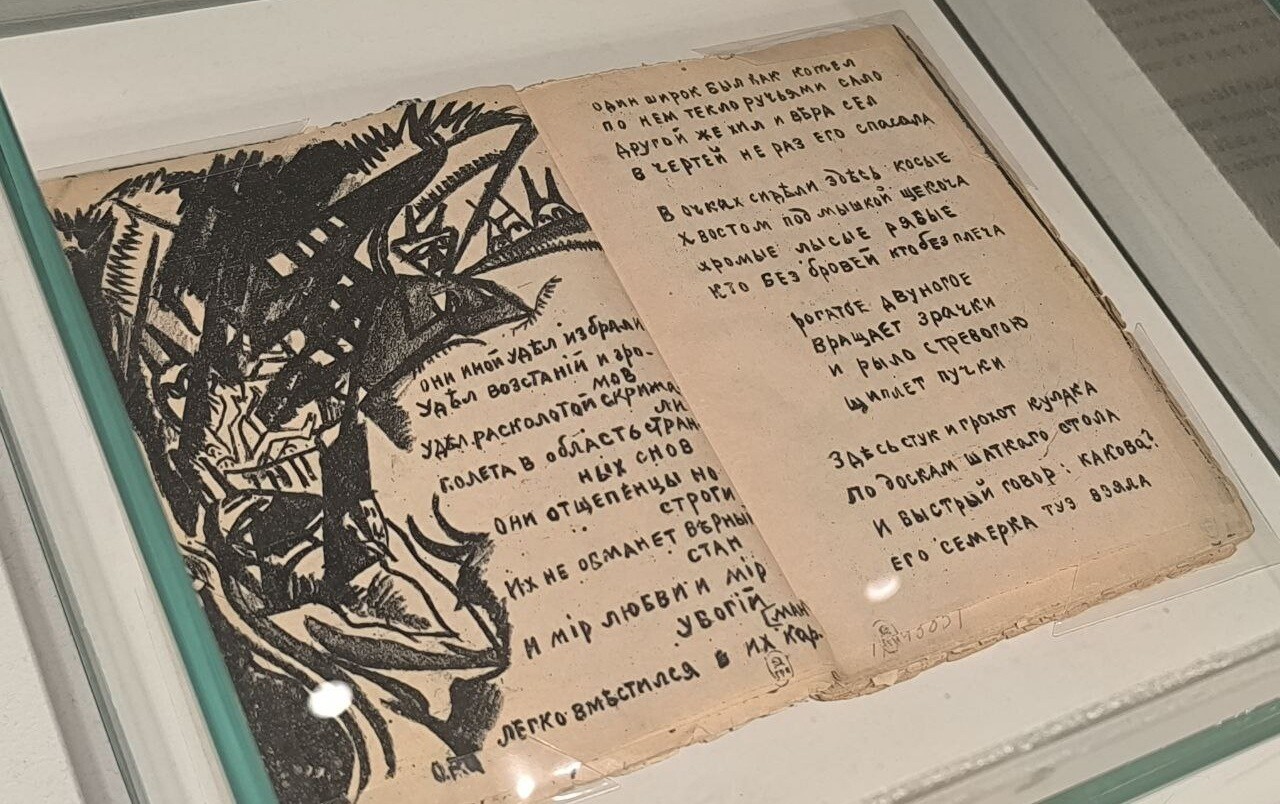 они иной удѣл избрали
удѣл возстаній и гро-
мов
удѣл расколотой скрижа
ли
полета в область стран
ных снов
они отщепенцы но
строги
Их не обманет вѣрный
стан
И мір любви и мір
убогій
[ман
легко вмѣстился в их кар.
О.Р.
один широк был как котел
по нем текло ручьями сало
другой же хил и вѣра сел
в чертей не раз его спасала
В очках сидѣли здѣсь косые
хвостом под мышкой щекоча
хромые лысые рябые
кто без бровей кто без плеча
рогатое двуногое
вращает зрачки
и рыло с тревогою
щиплет пучки
Здѣсь стук и грохот кулдка
по доскам шаткаго стола
и быстрый говор: какова?
его семерка туз взяла